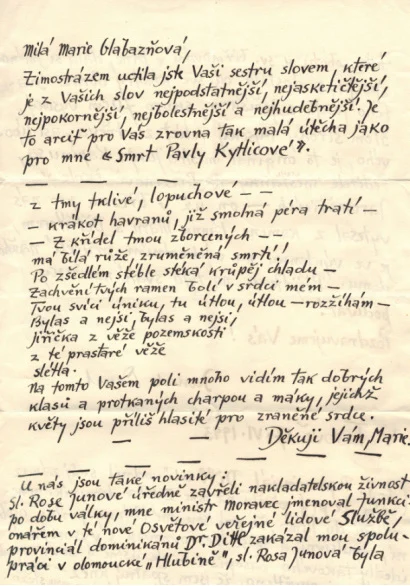 Milá Marie Glabazňová,
Zimostrázem uctila jste Vaši sestru slovem, které
je z Vašich slov nejpodstatnější, nejasketičtější,
nejpokornější, nejbolestnější a nejhudebnější. Je
to arciť pro Vás zrovna tak malá útěcha jako
pro mne « Smrt Pavly Kytlicové ».
z tmy tklivé, lopuchové — —
— krákot havranů, již smolná péra tratí —
— z křídel tmou zborcených — —
má bílá růže, zruměněná smrtí!
Po zšedlém stéble stéká krůpěj chladu —
Zachvění tvých ramen bolí v srdci mém —
Tvou svíci úniku, tu útlou, útlou — rozžíhám —
Bylas a nejsi, bylas a nejsi,
jiřička z věže pozemskosti
z té prastaré věže
slétla.
Na tomto Vašem poli mnoho vidím tak dobrých
klasů a protkaných charpou a máky, jejichž
květy jsou příliš hlasité pro zraněné srdce.
Děkuji Vám, Marie.
U nás jsou také novinky:
sl. Rose Junové úředně zavřeli nakladatelskou živnost
po dobu války, mne ministr Moravec jmenoval funkci-
onářem v té nové Osvětové veřejné lidové Službě,
provinciál dominikánů Dr. Dittl zakázal mou spolu-
práci v olomoucké „Hlubině", sl. Rosa Junová byla